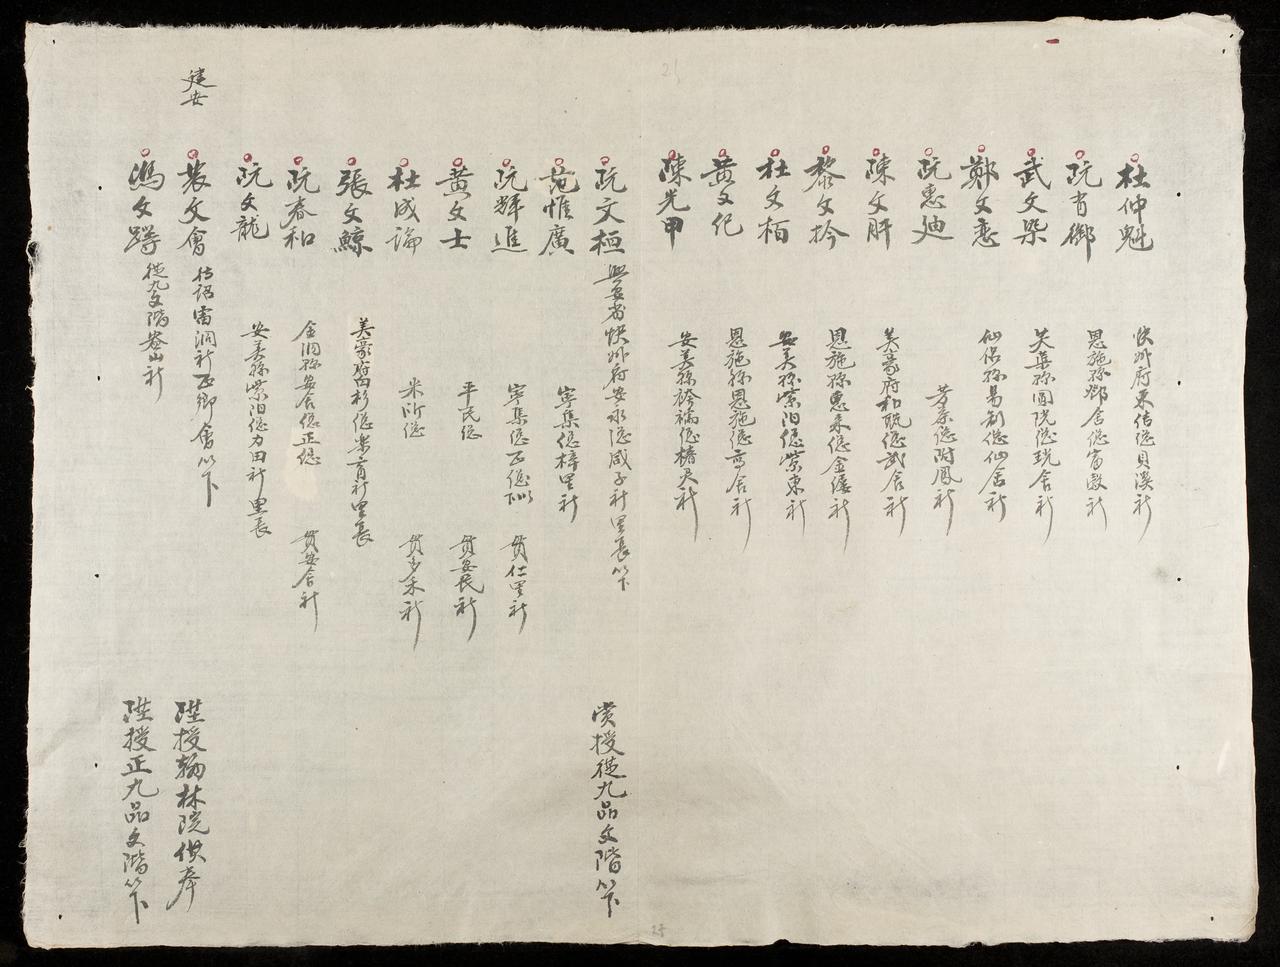 杜仲魁 快州府東結總貝溪社
阮有鄉 恩施縣鄧舍總富𣫲社
武文榘 芙蕖縣國院總珖舍社
鄭文憙 仙侶縣易制總仙舍社
阮惠迪 芳茶總附鳳社
陳文肝 美豪府和甿總武舍社
黎文捦 恩施縣惠來總金縷社
杜文栢 安美縣紫泪總紫東社
黃文紀 恩施縣恩施總高舍社
陳光甲 安美縣 總椿 社
阮文桓 興安省快州府安永總咸子社里長以下 赏授從九品文階以下
范惟廣 寧集總梓里社
阮輝進 寧集總正總以下 貫仁里社
黃文士 平民總 貫安民社
杜成論 米所總 貫多禾社
張文鯨 美豪府白杉總樂育社里長
阮春和 金洞縣安舍總正總 貫安舍社
阮文龍 安美縣紫泪總力田社里長
建安
裴文會 待詔雷洞社正鄉會以下 陞授翰林院供奉
馮文蹲 從九文階 山社 陞授正九品文階以下
25